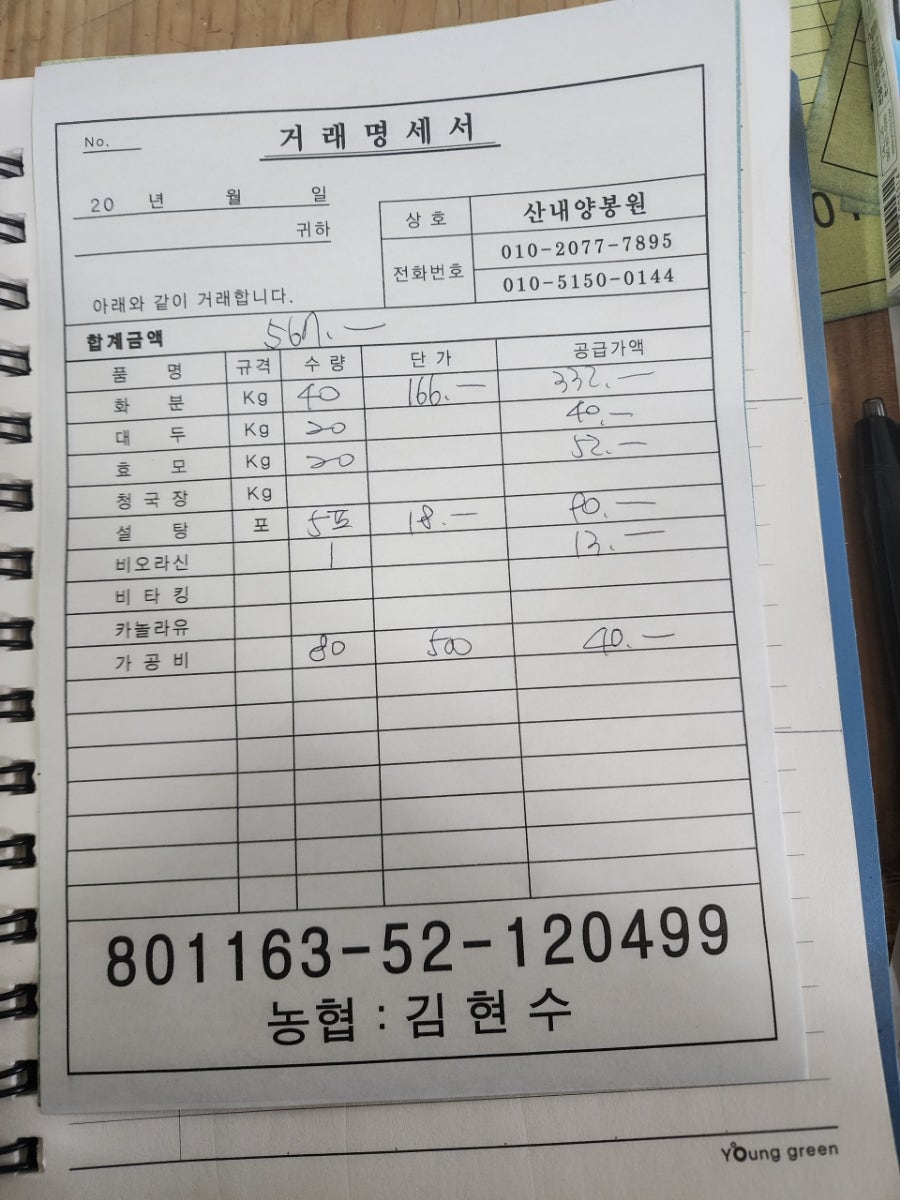 No.
거 래 명 세 서
20 년 월 일
귀하
상 호 산내양봉원
전화번호 010-2077-7895
010-5150-0144
아래와 같이 거래합니다.
합계금액 567.—
품 명 규격 수 량 단 가 공급가액
화 분 Kg 40 166.— 332.—
대 두 Kg 20 40.—
효 모 Kg 20 52.—
청 국 장 Kg
설 탕 포 5포 18.— 90.—
비오라신 1 13.—
비 타 킹
카놀라유
가 공 비 80 500 40.—
801163-52-120499
농협 : 김 현 수
Young green